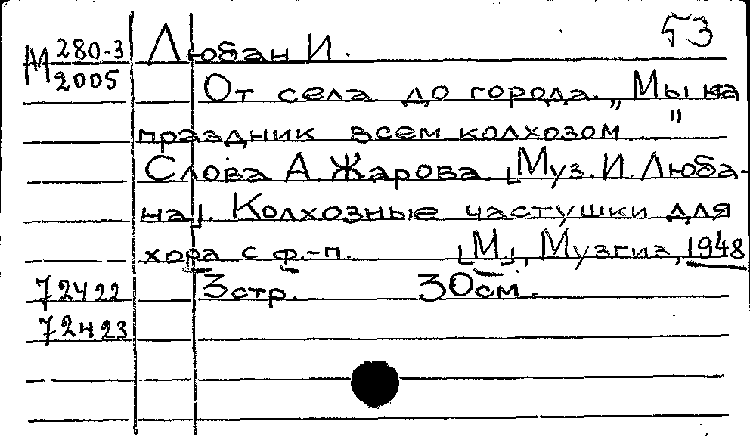 53
М 280-3 Любан И.
2005
От села до города. „Мы на
праздник всем колхозом"
Слова А. Жарова. [Муз. И. Люба-
на]. Колхозные частушки для
хора с ф.-п. [М], Музгиз, 1948
72422 3 стр. 30 см.
72423